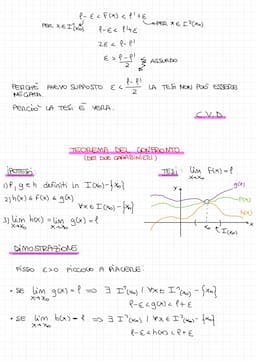 ℓ-ε < f(x) < ℓ'+ε
PER x∈I'(x₀) PER x∈I²(x₀)
ℓ-ε < ℓ'+ε
2ε < ℓ-ℓ'
ε > ℓ-ℓ'/2 ASSURDO
PERCHÉ AVEVO SUPPOSTO ε < ℓ-ℓ'/2 LA TESI NON PUÒ ESSERE
NEGATA
PERCIÒ LA TESI È VERA.
C.V.D
TEOREMA DEL CONFRONTO
(DEI DUE CARABINIERI)
IPOTESI: TESI: lim f(x) = ℓ
x→x₀
1) f, g e h definiti in I(x₀)-{x₀}
2) h(x) ≤ f(x) ≤ g(x)
∀x∈I(x₀)-{x₀}
3) lim h(x) = lim g(x) = ℓ
x→x₀ x→x₀
y g(x)
f(x)
h(x)
x₀ x
I(x₀)
DIMOSTRAZIONE
FISSO ε>0 PICCOLO A PIACERE:
• SE lim g(x) = ℓ ⇒ ∃ I'(x₀) / ∀x∈I'(x₀)-{x₀}
x→x₀
ℓ-ε < g(x) < ℓ+ε
• SE lim h(x) = ℓ ⇒ ∃ I²(x₀) / ∀x∈I²(x₀)-{x₀}
x→x₀
ℓ-ε < h(x) < ℓ+ε